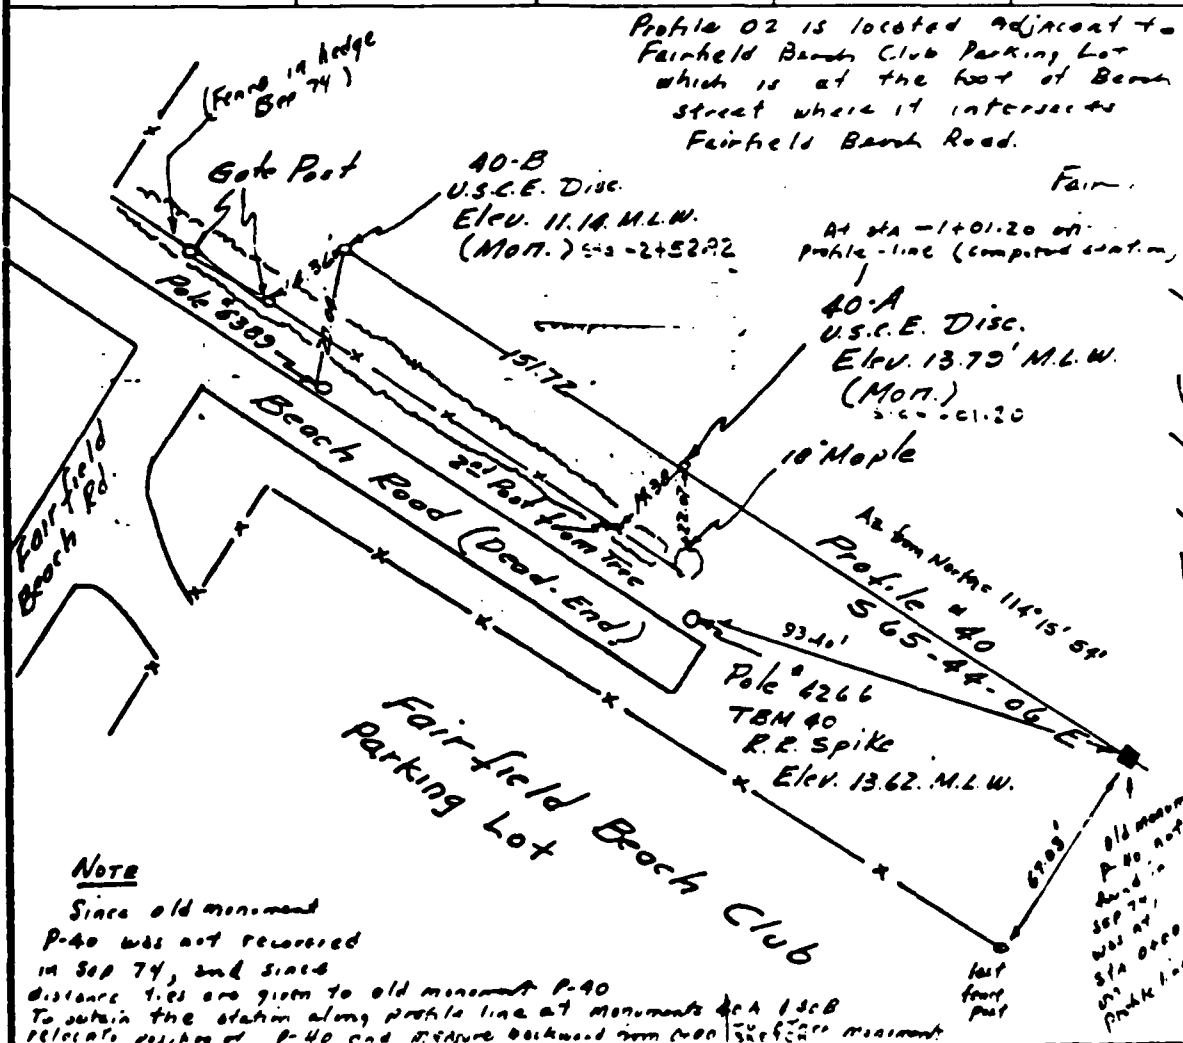 Profile 02 is located adjacent to
Fairfield Beach Club Parking Lot
which is at the foot of Beach
street where it intersects
Fairfield Beach Road.
(Fence in hedge
Sep 74)
Gate Post
40-B
U.S.C.E. Disc.
Elev. 11.14 M.L.W.
(Mon.) sta -2+52.92
Fair
At sta -1+01.20 on
Profile-line (computed station,
40-A
U.S.C.E. Disc.
Elev. 13.79' M.L.W.
(Mon.)
18" Maple
Pole #6389
151.72'
14.38
22.67
2nd Post from Tree
Beach Road (Dead-End)
Fairfield
Beach Rd.
Az from North 114° 15' 54"
Profile #40
S 65-44-06 E
93.40'
Pole # 6266
TBM 40
R.R. Spike
Elev. 13.62. M.L.W.
Fairfield Beach Club
Parking Lot
67.03'
last
fence
post
old monum
P-40 not
found in
Sep 74,
was at
sta 0+00
on
profile line
NOTE
Since old monument
P-40 was not recovered
in Sep 74, and since
distance ties are given to old monument P-40
To obtain the station along profile line at monuments
relocate position of P-40 and measure backward from monument